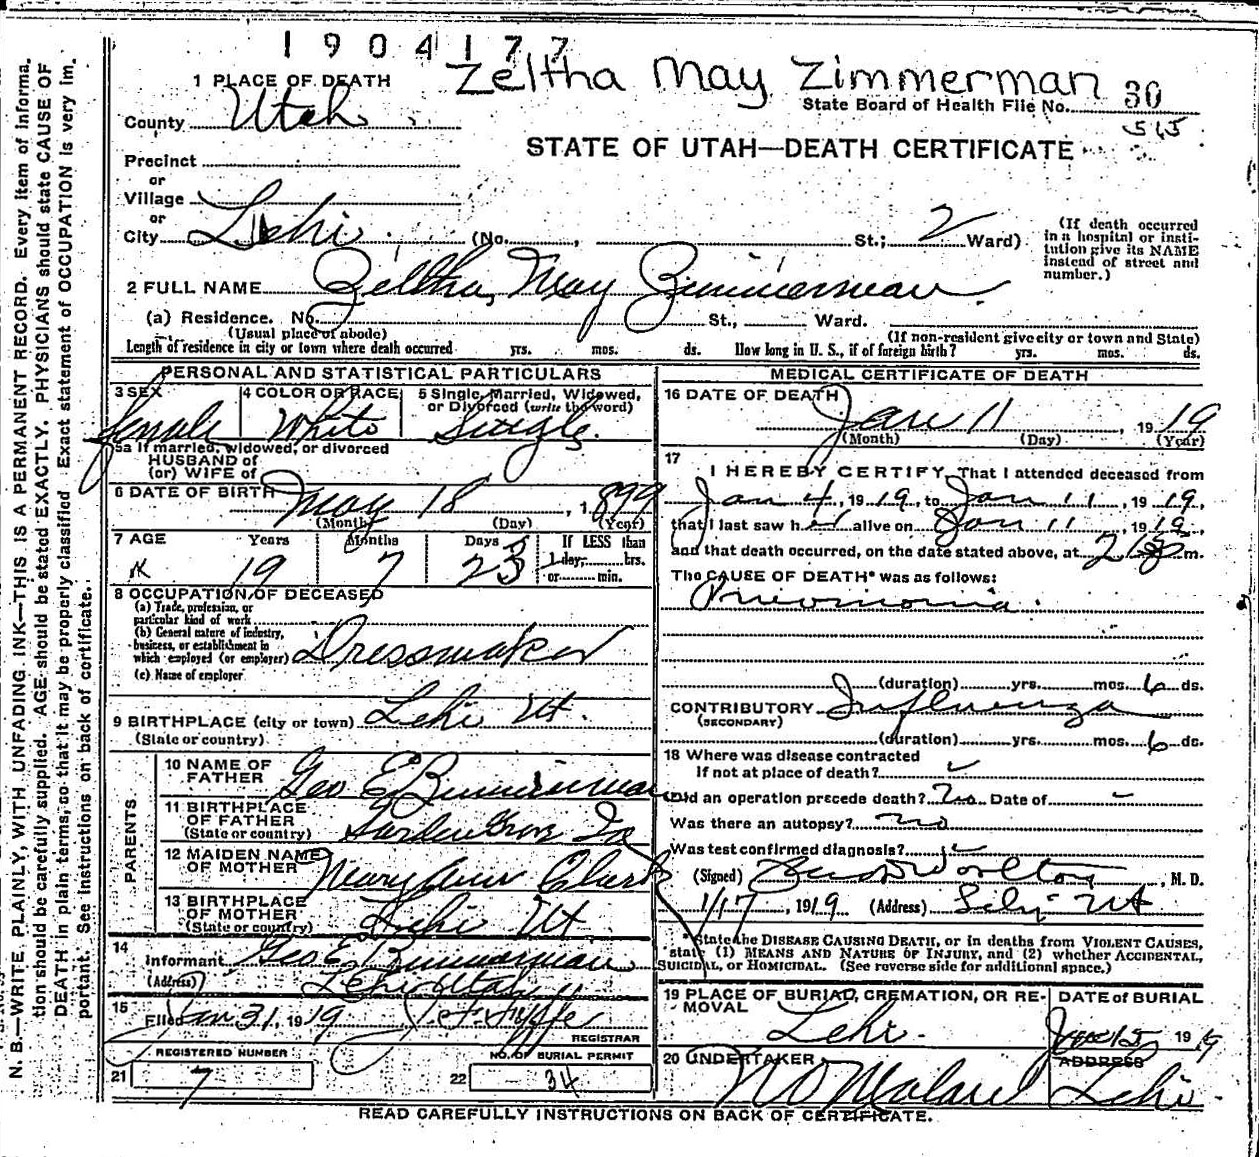 1904177
Zeltha May Zimmerman
1 PLACE OF DEATH
State Board of Health File No. 30
County Utah
515
STATE OF UTAH—DEATH CERTIFICATE
Precinct
or
Village
or
City Lehi (No. , St.; 2 Ward)
(If death occurred in a hospital or institution give its NAME instead of street and number.)
2 FULL NAME Zeltha May Zimmerman
(a) Residence. No. St., Ward.
(Usual place of abode) (If non-resident give city or town and State)
Length of residence in city or town where death occurred yrs. mos. ds. How long in U. S., if of foreign birth? yrs. mos. ds.
PERSONAL AND STATISTICAL PARTICULARS
3 SEX female
4 COLOR OR RACE White
5 Single, Married, Widowed, or Divorced (write the word) Single
5a If married, widowed, or divorced
HUSBAND of
(or) WIFE of
6 DATE OF BIRTH May 18, 1899
(Month) (Day) (Year)
7 AGE Years Months Days If LESS than
19 7 23 1 day, hrs.
or min.
8 OCCUPATION OF DECEASED
(a) Trade, profession, or
particular kind of work
(b) General nature of industry,
business, or establishment in
which employed (or employer) Dressmaker
(c) Name of employer
9 BIRTHPLACE (city or town) Lehi Ut.
(State or country)
PARENTS
10 NAME OF FATHER Geo E Zimmerman
11 BIRTHPLACE OF FATHER (State or country) Garden Grove Ia
12 MAIDEN NAME OF MOTHER Mary Ann Clark
13 BIRTHPLACE OF MOTHER (State or country) Lehi Ut
14
Informant Geo E Zimmerman
(Address) Lehi Utah
15
Filed Jan 31, 1919
REGISTRAR
REGISTERED NUMBER NO. OF BURIAL PERMIT
21 7 22 34
MEDICAL CERTIFICATE OF DEATH
16 DATE OF DEATH Jan 11, 1919
(Month) (Day) (Year)
17
I HEREBY CERTIFY, That I attended deceased from
Jan 4, 1919, to Jan 11, 1919,
that I last saw her alive on Jan 11, 1919,
and that death occurred, on the date stated above, at m.
The CAUSE OF DEATH* was as follows:
Pneumonia.
(duration) yrs. mos. 6 ds.
CONTRIBUTORY Influenza
(SECONDARY)
(duration) yrs. mos. 6 ds.
18 Where was disease contracted
If not at place of death?
Did an operation precede death? No Date of -
Was there an autopsy? no
Was test confirmed diagnosis?
(Signed) , M. D.
1/17, 1919 (Address) Lehi Ut
*State the DISEASE CAUSING DEATH, or in deaths from VIOLENT CAUSES,
state (1) MEANS AND NATURE OF INJURY, and (2) whether ACCIDENTAL,
SUICIDAL, or HOMICIDAL. (See reverse side for additional space.)
19 PLACE OF BURIAL, CREMATION, OR REMOVAL DATE of BURIAL
Lehi. 15 1919
20 UNDERTAKER ADDRESS
Lehi.
READ CAREFULLY INSTRUCTIONS ON BACK OF CERTIFICATE.
N. B.—WRITE PLAINLY, WITH UNFADING INK—THIS IS A PERMANENT RECORD. Every item of informa-
tion should be carefully supplied. AGE should be stated EXACTLY. PHYSICIANS should state CAUSE OF
DEATH in plain terms, so that it may be properly classified. Exact statement of OCCUPATION is very im-
portant. See instructions on back of certificate.